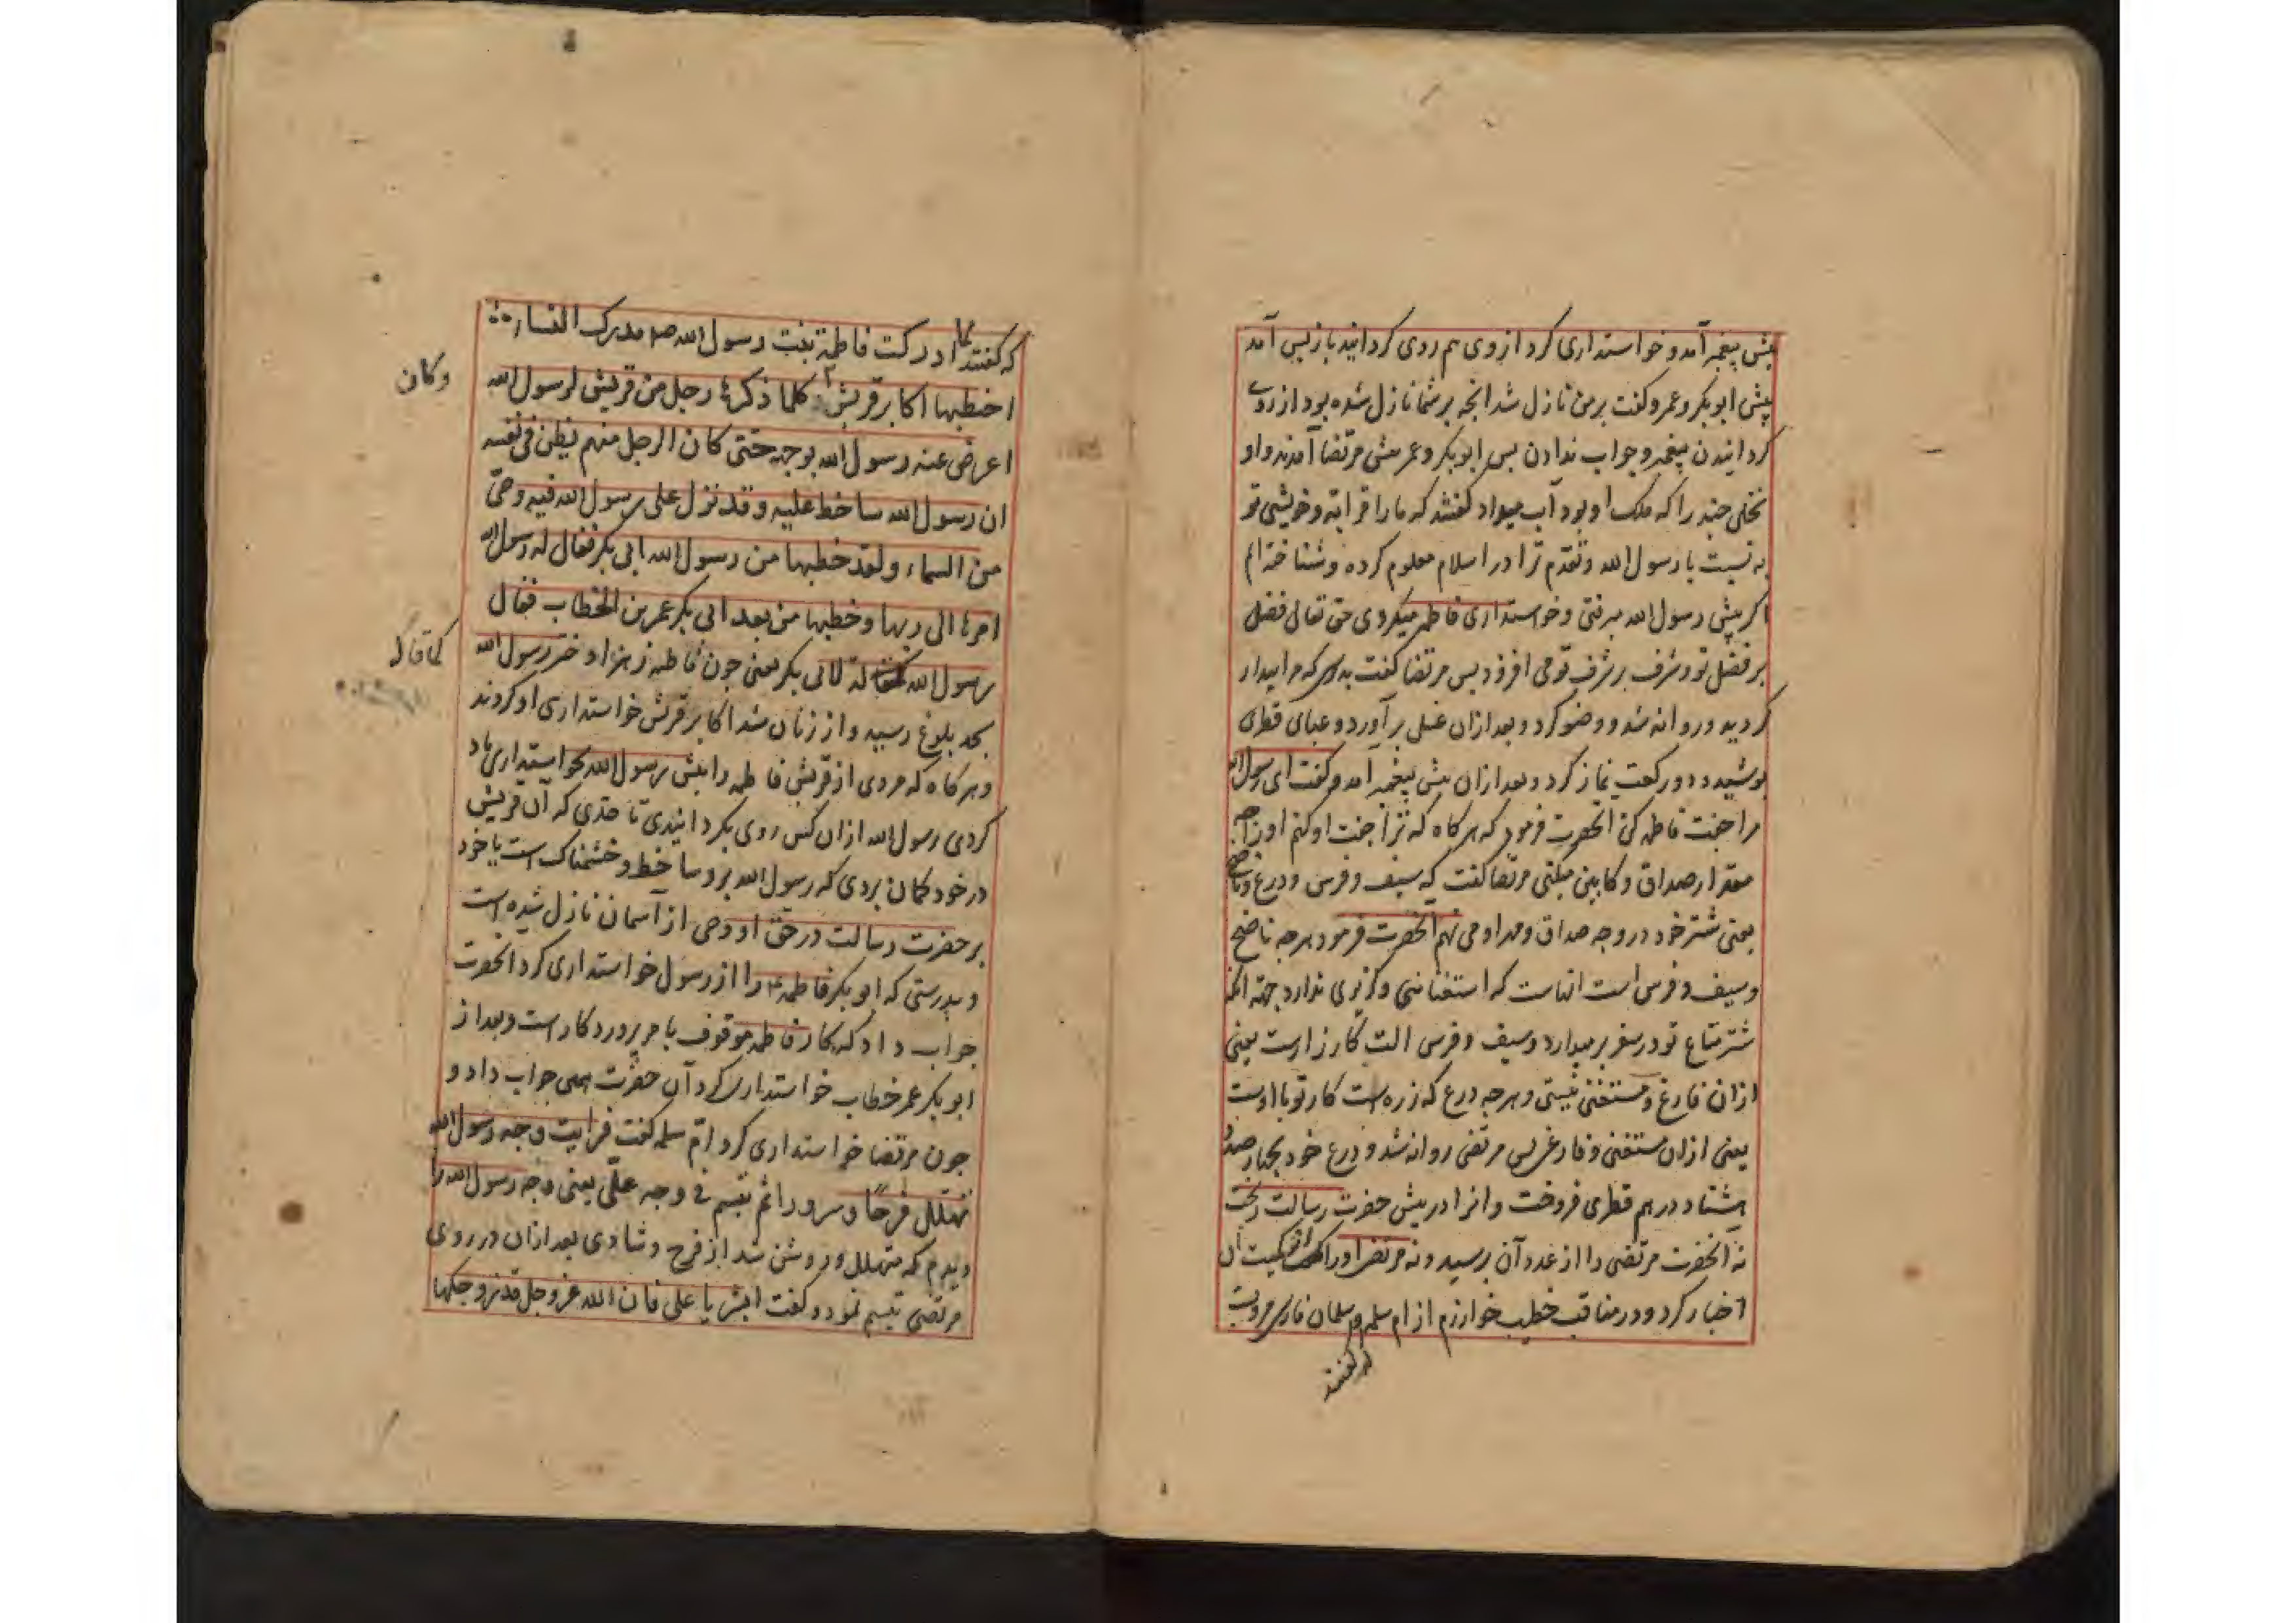 پیش پیغمبر آمد و خواستداری کرد از وی هم روی کردانید باز پس آمد
پیش ابوبکر و عمر و کفت بر من نازل شد انچه بر شما نازل شده بود از روی
کردانیدن پیغمبر و جواب ندادن پس ابوبکر و عمر پیش مرتضا آمدند و او
نخلی چند را که ملک او بود آب میداد کفتند که ما را قرابة و خویشی تو
به نسبت با رسول الله و تقدم ترا در اسلام معلوم کرده و شناخته ایم
اکر پیش رسول الله میرفتی و خواستداری فاطمه میکردی حق تعالی فضل
بر فضل تو و شرف بر شرف تو می افزود پس مرتضا کفت که مرا بیدار
کردید و روانه شد و وضو کرد و بعد ازان غسلی بر آورد و عبای قطری
پوشیده دو رکعت نماز کرد و بعد ازان پیش پیغمبر آمد و کفت ای رسول الله
مرا جفت فاطمه کن انحضرت فرمود که هر کاه که ترا جفت او کنم او را چه
مقدار صداق و کابین میکنی مرتضا کفت که سیف و فرس و درع و ناضح
یعنی شتر خود در وجه صداق و مهر او می نهم انحضرت فرمود هرچه ناضح
و سیف و فرس است انهاست که استغنا نیی و کزیری ندارد جهة انکه
شتر متاع تو در سفر بر میدارد و سیف و فرس الت کارزارست یعنی
ازان فارغ و مستغنی نیستی و هرچه درع که زره است کار تو با اوست
یعنی ازان مستغنی و فارغی پس مرتضی روانه شد و درع خود بچهار صد و
هشتاد درهم قطری فروخت و انرا در پیش حضرت رسالت ریخت
نه انحضرت مرتضی را از عدد آن پرسید و نه مرتضی او را از کمیت آن
اخبار کرد و در مناقب خطیب خوارزم از ام سلمه و سلمان فارسی مرویست
که کفتند
که کفتند لما ادرکت فاطمة بنت رسول الله صم مدرک النساء
اخطبها اکابر قریش کلما ذکرها رجل من قریش لرسول الله
وکان
اعرض عنه رسول الله بوجهه حتی کان الرجل منهم یظن فی نفسه
ان رسول الله ساخط علیه و قد نزل علی رسول الله فیه وحی
من السماء و لقد خطبها من رسول الله ابی بکر فقال له رسول الله
امرها الی ربها و خطبها من بعد ابی بکر عمر بن الخطاب فقال
رسول الله له لابی بکر یعنی چون فاطمه زهرا دختر رسول الله
کما قال
بحد بلوغ رسید و از زنان شد اکابر قریش خواستداری او کردند
و هر کاه که مردی از قریش فاطمه را پیش رسول الله بخواستداری یاد
کردی رسول الله ازان کس روی بکردانیدی تا حدی که آن قریش
در خود کمان بردی که رسول الله برو ساخط و خشمناک است یا خود
بر حضرت رسالت در حق او وحی از آسمان نازل شده است
و بدرستی که ابوبکر فاطمه را از رسول خواستداری کرد انحضرت
جواب داد که کار فاطمه موقوف بامر پروردکار است و بعد از
ابوبکر عمر خطاب خواستداری کرد آن حضرت همین جواب داد و
چون مرتضا خواستداری کرد ام سلمه کفت فرایت وجه رسول الله
تهلل فرحًا و سرورا ثم تبسم فی وجه علی یعنی وجه رسول الله را
دیدم که متهلل و روشن شد از فرح و شادی بعد ازان در روی
مرتضی تبسم نمود و کفت ابشر یا علی فان الله عز و جل قد زوجکها